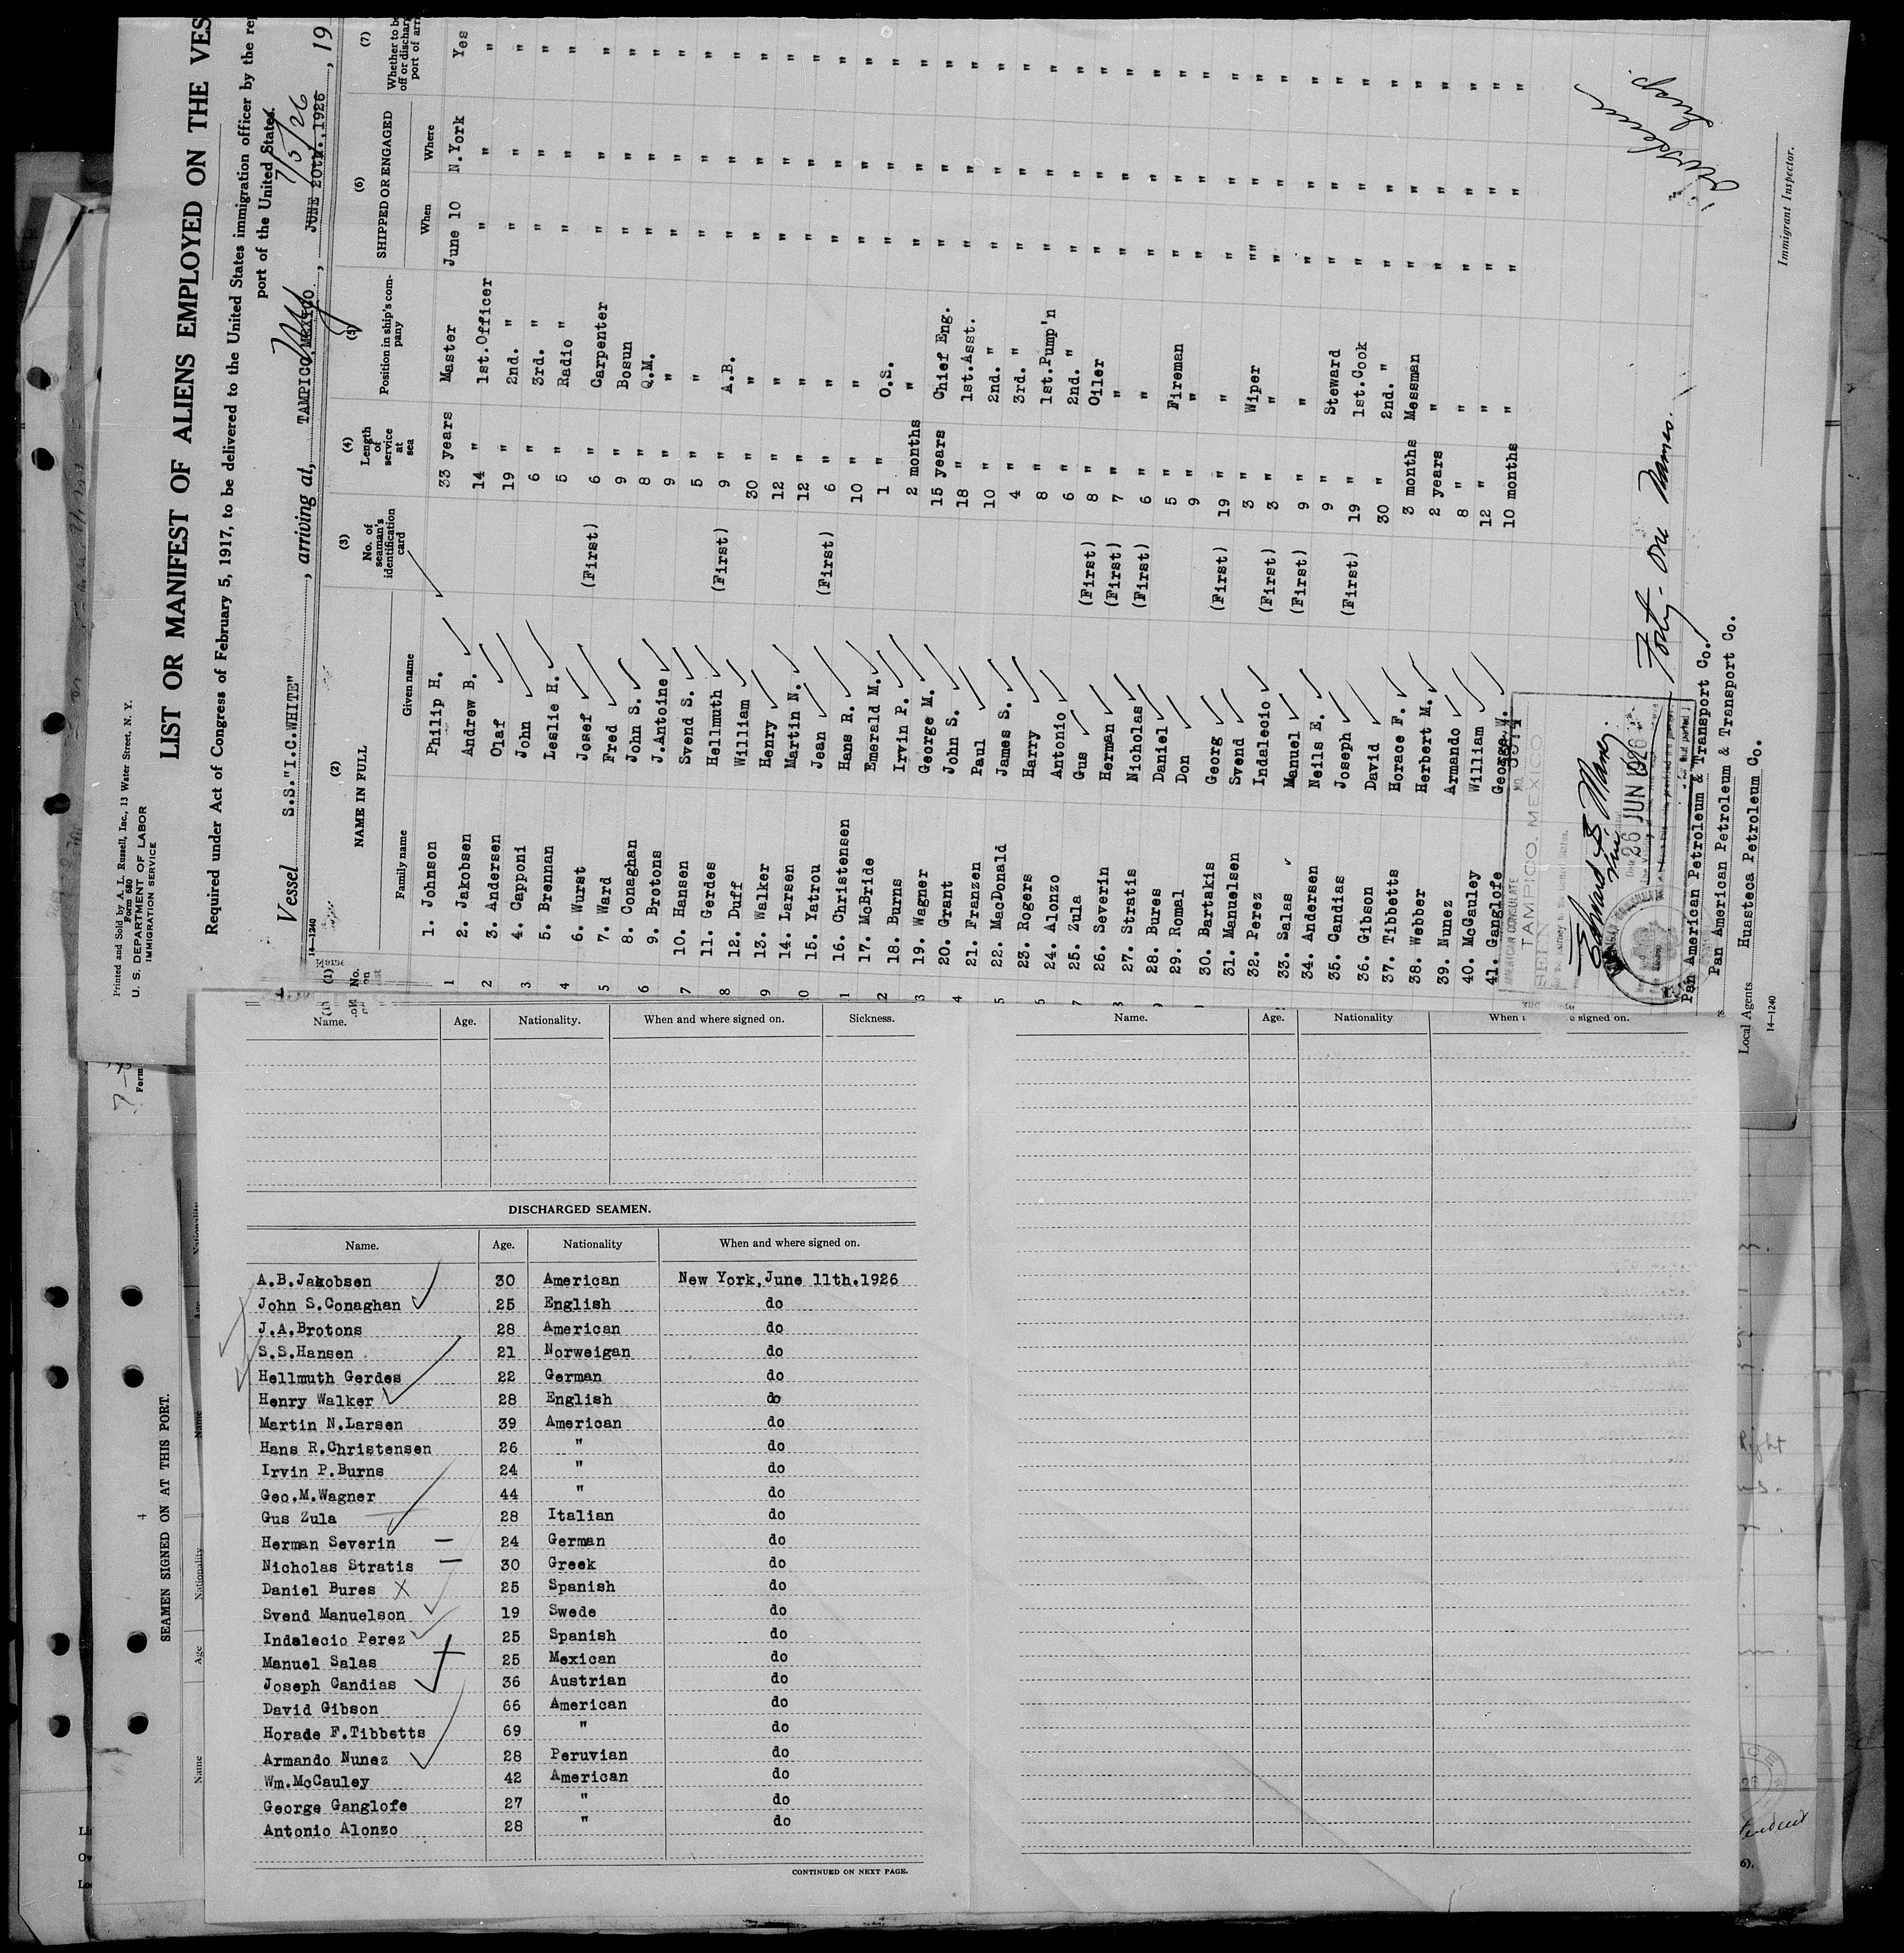 Printed and Sold by A. L. Russell, Inc., 13 Water Street, N. Y.
Form 680
U. S. DEPARTMENT OF LABOR
IMMIGRATION SERVICE
LIST OR MANIFEST OF ALIENS EMPLOYED ON THE VES
Required under Act of Congress of February 5, 1917, to be delivered to the United States immigration officer by the rep
port of the United States.
7/5/26
Vessel S.S."I.C.WHITE", arriving at, TAMPICO,MEXICO. NY, JUNE 20th.,1926, 19
14-1240
(1) No. (2) NAME IN FULL (3) No. of seaman's identification card (4) Length of service at sea (5) Position in ship's company (6) SHIPPED OR ENGAGED (7) Whether to be
off or discharg
port of arr
Family name Given name When Where
1. Johnson Philip H. 33 years Master June 10 N.York Yes
2. Jakobsen Andrew B. 14 " 1st.Officer " " "
3. Andersen Olaf 19 " 2nd. " " " "
4. Capponi John 6 " 3rd. " " " "
5. Brennan Leslie H. 5 " Radio " " " "
6. Wurst Josef (First) 6 " Carpenter " " "
7. Ward Fred 9 " Bosun " " "
8. Conaghan John S. 8 " Q.M. " " "
9. Brotons J.Antoine 9 " " " " "
10. Hansen Svend S. 5 " " " " "
11. Gerdes Hellmuth (First) 9 " A.B. " " "
12. Duff William 30 " " " " "
13. Walker Henry 12 " " " " "
14. Larsen Martin N. 12 " " " " "
15. Yatrou Jean (First) 6 " " " " "
16. Christensen Hans R. 10 " " " " "
17. McBride Emerald M. 1 " O.S. " " "
18. Burns Irvin P. 2 months " " " "
19. Wagner George M. 15 years Chief Eng. " " "
20. Grant John S. 18 " 1st.Asst. " " "
21. Franzen Paul 10 " 2nd. " " " "
22. MacDonald James S. 4 " 3rd. " " " "
23. Rogers Harry 8 " 1st.Pump'n " " "
24. Alonzo Antonio 6 " 2nd. " " " "
25. Zula Gus (First) 8 " Oiler " " "
26. Severin Herman (First) 7 " " " " "
27. Stratis Nicholas (First) 6 " " " " "
28. Bures Daniel 5 " Fireman " " "
29. Romal Don 9 " " " " "
30. Bartakis Georg (First) 19 " " " " "
31. Manuelsen Svend 3 " Wiper "" " "
32. Perez Indalecio (First) 3 " " " " "
33. Salas Manuel (First) 9 " " " " "
34. Andersen Neils E. 9 " Steward " " "
35. Candias Joseph (First) 19 " 1st.Cook " " "
36. Gibson David 30 " 2nd. " " " "
37. Tibbetts Horace F. 3 months Messman " " "
38. Webber Herbert M. 2 years " " " "
39. Nunez Armando 8 " " " " "
40. McCauley William 12 " " " " "
41. Ganglofe George W. 10 months " " " "
AMERICAN CONSULATE
TAMPICO, MEXICO
SEEN
26 JUN 1926
Forty-one Names.
Insp.
Immigrant Inspector.
Pan American Petroleum & Transport Co.
Pan American Petroleum & Transport Co.
Local Agents Huasteca Petroleum Co.
14-1240
Name. Age. Nationality. When and where signed on. Sickness.
Name. Age. Nationality When signed on.
DISCHARGED SEAMEN.
Name. Age. Nationality When and where signed on.
A.B.Jakobsen 30 American New York,June 11th.1926
John S.Conaghan 25 English do
J.A.Brotons 28 American do
S.S.Hansen 21 Norweigan do
Hellmuth Gerdes 22 German do
Henry Walker 28 English do
Martin N.Larsen 39 American do
Hans R.Christensen 26 " do
Irvin P.Burns 24 " do
Geo.M.Wagner 44 " do
Gus Zula 28 Italian do
Herman Severin 24 German do
Nicholas Stratis 30 Greek do
Daniel Bures X 25 Spanish do
Svend Manuelson 19 Swede do
Indelecio Perez 25 Spanish do
Manuel Salas 25 Mexican do
Joseph Candias 36 Austrian do
David Gibson 66 American do
Horade F.Tibbetts 69 " do
Armando Nunez 28 Peruvian do
Wm.McCauley 42 American do
George Ganglofe 27 " do
Antonio Alonzo 28 " do
CONTINUED ON NEXT PAGE.
4
SEAMEN SIGNED ON AT THIS PORT.
Name Age Nationality Name